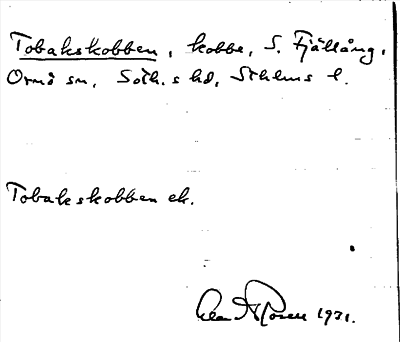 Tobakskobben, kobbe, S. Fjällång,
Ornö sn, Soth.s hd, Sthlms l.
Tobakskobben ek.
1931.